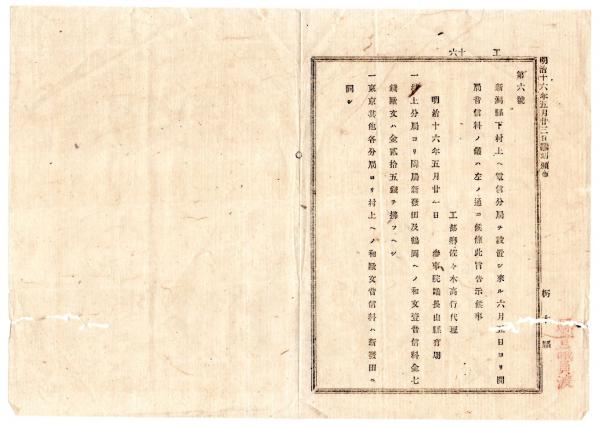 明治十六年五月廿三日
工 十六
第六號
新潟縣下村上ヘ電信分局ヲ設置シ來ル六月 日ヨリ開
局音信料ノ儀ハ左ノ通ニ候條此旨告示候事
工部卿佐々木高行代理
明治十六年五月廿一日 參事院議長山縣有朋
一村上分局ヨリ隣局新發田及鶴岡ヘノ和文壹音信料金七
錢歐文ハ金貳拾五錢ヲ拂フヘシ
一東京其他各分局ヨリ村上ヘノ和歐文音信料ハ新發田ニ
同シ
縣